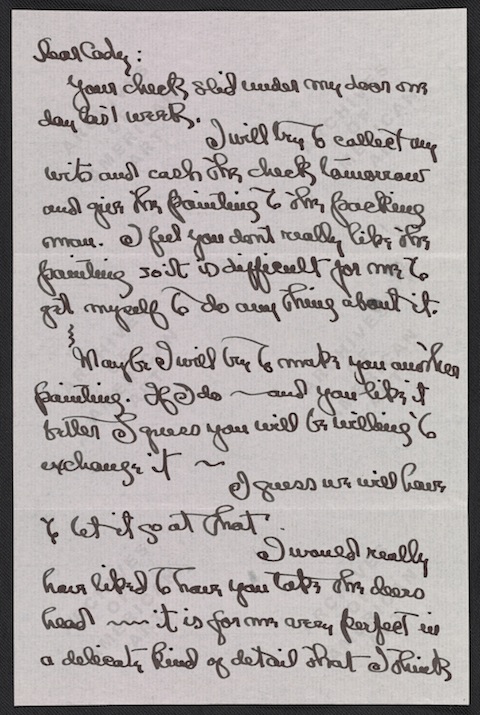 Dear Cady:
Your check slid under my door one
day last week.
I will try to collect my
wits and cash the check tomorrow
and give the painting to the packing
man. I feel you dont really like the
painting so it is difficult for me to
get myself to do any thing about it.
Maybe I will try to make you another
painting. If I do — and you like it
better I guess you will be willing to
exchange it ~
I guess we will have
to let it go at that.
I would really
have liked to have you take the deers
head ~ it is for me very perfect in
a delicate kind of detail that I think